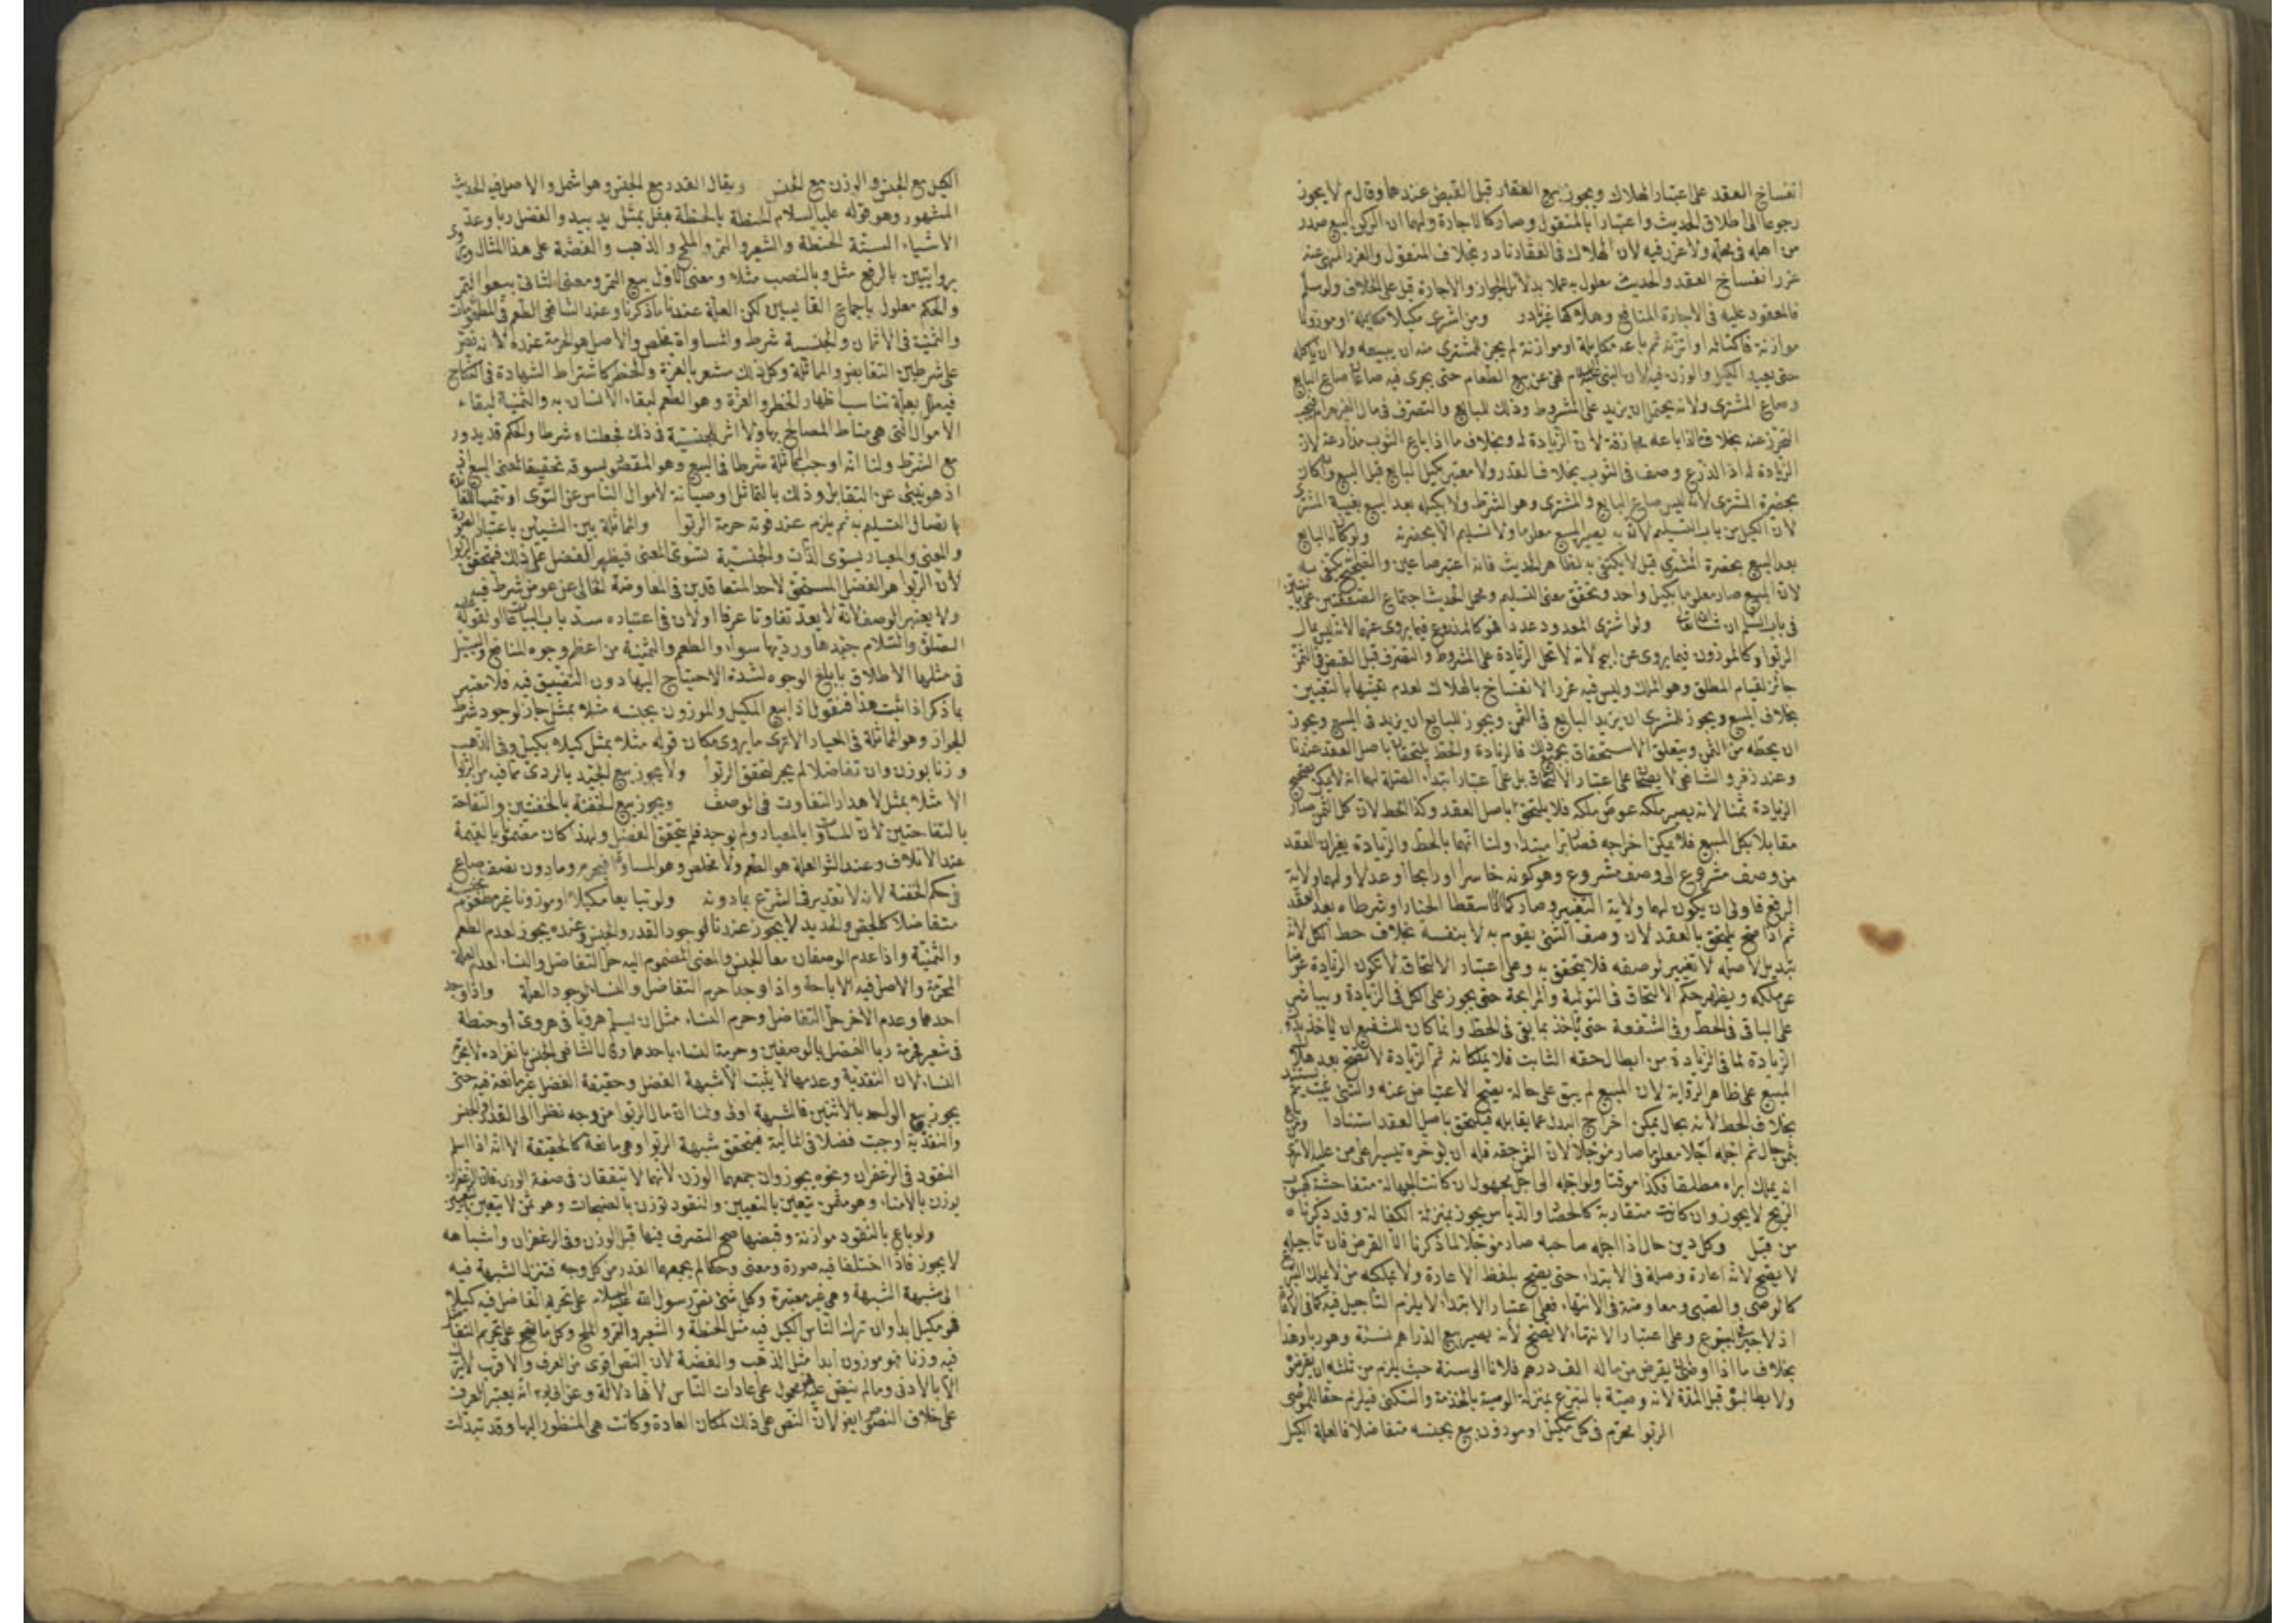 انفساخ العقد على اعتبار الهلاك ويجوز بيع العقار قبل القبض عندهما وقال م لا يجوز
رجوعا الى اطلاق الحديث واعتبارا بالمنقول وصار كالاجارة ولهما ان الركن البيع صدر
من اهله فى محله ولا غرر فيه لان الهلاك فى العقار نادر بخلاف المنقول والغرر المنهى عنه
غرر انفساخ العقد والحديث معلول به عملا بدلائل الجواز والاجارة قيل على الخلاف ولو سلم
فالمعقود عليه فى الاجارة المنافع وهلاكها غير نادر ومن اشترى مكيلا مكايلة او موزونا
موازنة فاكتاله او اتزنه ثم باعه مكايلة او موازنة لم يجز للمشترى منه ان يبيعه ولا ان ياكله
حتى يعيد الكيل والوزن فيه لان النبى نهى عن بيع الطعام حتى يجرى فيه صاعان صاع البايع
وصاع المشترى ولانه يحتمل ان يزيد على المشروط وذلك للبايع والتصرف فى مال الغير حرام فيجب
التحرز عنه بخلاف ما اذا باعه مجازفة لان الزيادة له وبخلاف ما اذا باع الثوب مذارعة لان
الزيادة له اذ الذرع وصف فى الثوب بخلاف القدر ولا معتبر بكيل البايع قبل البيع وان كان
بحضرة المشترى لانه ليس صاع البايع والمشترى وهو الشرط ولا بكيله بعد البيع بغيبة المشترى
لان الكيل من باب التسليم لان به يصير المبيع معلوما ولا تسليم الا بحضرته ولو كاله البايع
بعد البيع بحضرة المشترى قيل لا يكتفى به لظاهر الحديث فانه اعتبر صاعين والصحيح انه يكتفى به
لان المبيع صار معلوما بكيل واحد وتحقق معنى التسليم ومحمل الحديث اجتماع الصفقتين على ما نبين
فى باب السلم ان شاء الله تعالى ولو اشترى المعدود عددا فهو كالمذروع فيما يروى عنهما لانه ليس بمال
الربوا وكالموزون فيما يروى عن ابيح لانه لا تحل الزيادة على المشروط والتصرف قبل القبض فى الثمن
جائز لقيام المطلق وهو الملك وليس فيه غرر الانفساخ بالهلاك لعدم تعينها بالتعيين
بخلاف المبيع ويجوز للمشترى ان يزيد البايع فى الثمن ويجوز للبايع ان يزيد فى المبيع ويجوز
ان يحط من الثمن ويتعلق الاستحقاق بجميع ذلك فالزيادة والحط يلتحقان باصل العقد عندنا
وعند زفر والشافعى لا يصحان على اعتبار الالتحاق بل على اعتبار ابتداء الصلة لهما انه لا يمكن تصحيح
الزيادة ثمنا لانه يصير ملكه عوض ملكه فلا يلتحق باصل العقد وكذا الحط لان كل الثمن صار
مقابلا بكل المبيع فلا يمكن اخراجه فصار برا مبتدا ولنا انهما بالحط والزيادة يغيران العقد
من وصف مشروع الى وصف مشروع وهو كونه خاسرا او رابحا او عدلا ولهما ولاية
الرفع فاولى ان يكون لهما ولاية التغيير وصار كما اذا اسقطا الخيار او شرطاه بعد العقد
ثم اذا صح يلتحق بالعقد لان وصف الشئ يقوم به لا بنفسه بخلاف حط الكل لانه
تبديل لاصله لا تغيير لوصفه فلا يلتحق به وعلى اعتبار الالتحاق لا تكون الزيادة عوضا
عن ملكه ويظهر حكم الالتحاق فى التولية والمرابحة حتى يجوز على الكل فى الزيادة ويباشر
على الباقى فى الحط وفى الشفعة حتى ياخذ بما بقى فى الحط وانما كان للشفيع ان ياخذ بدون
الزيادة لما فى الزيادة من ابطال حقه الثابت فلا يملكانه ثم الزيادة لا تصح بعد هلاك
المبيع على ظاهر الرواية لان المبيع لم يبق على حالة يصح الاعتياض عنه والشئ يثبت ثم يستند
بخلاف الحط لانه بحال يمكن اخراج البدل عما يقابله فيلتحق باصل العقد استنادا ومن باع
بثمن حال ثم اجله اجلا معلوما صار مؤجلا لان الثمن حقه فله ان يؤخره تيسيرا على من عليه الا ترى
انه يملك ابراءه مطلقا فكذا موقتا ولو اجله الى اجل مجهول ان كانت الجهالة متفاحشة كهبوب
الريح لا يجوز وان كانت متقاربة كالحصاد والدياس يجوز بمنزلة الكفالة وقد ذكرناه
من قبل وكل دين حال اذا اجله صاحبه صار مؤجلا لما ذكرنا الا القرض فان تاجيله
لا يصح لانه اعارة وصلة فى الابتداء حتى يصح بلفظ الاعارة ولا يملكه من لا يملك التبرع
كالوصى والصبى ومعاوضة فى الانتهاء فعلى اعتبار الابتداء لا يلزم التاجيل فيه كما فى الاعارة
اذ لا جبر فى التبرع وعلى اعتبار الانتهاء لا يصح لانه يصير بيع الدراهم بنسيئة وهو ربا وهذا
بخلاف ما اذا اوصى ان يقرض من ماله الف درهم فلانا الى سنة حيث يلزم من ثلثه ان يقرضوه
ولا يطالبوه قبل المدة لانه وصية بالتبرع بمنزلة الوصية بالخدمة والسكنى فيلزم حقا للموصى
الربوا محرم فى كل مكيل او موزون بيع بجنسه متفاضلا فالعلة الكيل
الكيل مع الجنس والوزن مع الجنس ويقال القدر مع الجنس وهو اشمل والاصل فيه الحديث
المشهور وهو قوله عليه السلام الحنطة بالحنطة مثل بمثل يد بيد والفضل ربا وعد
الاشياء الستة الحنطة والشعير والتمر والملح والذهب والفضة على هذا المثال وروى
بروايتين بالرفع مثل وبالنصب مثلا ومعنى الاول بيع التمر ومعنى الثانى بيعوا التمر
والحكم معلول باجماع القايسين لكن العلة عندنا ما ذكرنا وعند الشافعى الطعم فى المطعومات
والثمنية فى الاثمان والجنسية شرط والمساواة مخلص والاصل هو الحرمة عنده لانه نص
على شرطين التقابض والمماثلة وكل ذلك مشعر بالعزة والخطر كاشتراط الشهادة فى النكاح
فيعلل بعلة تناسب اظهار الخطر والعزة وهو الطعم لبقاء الانسان به والثمنية لبقاء
الاموال التى هى مناط المصالح بها ولا اثر للجنسية فى ذلك فجعلناه شرطا والحكم قد يدور
مع الشرط ولنا انه اوجب المماثلة شرطا فى البيع وهو المقصود بسوقه تحقيقا لمعنى البيع
اذ هو ينبئ عن التقابل وذلك بالتماثل او صيانة لاموال الناس عن التوى او تتميما للفائدة
باتصال التسليم به ثم يلزم عند فوته حرمة الربوا والمماثلة بين الشيئين باعتبار الصورة
والمعنى والمعيار يسوى الذات والجنسية تسوى المعنى فيظهر الفضل على ذلك فيتحقق الربوا
لان الربوا هو الفضل المستحق لاحد المتعاقدين فى المعاوضة الخالى عن عوض شرط فيه
ولا يعتبر الوصف لانه لا يعد تفاوتا عرفا او لان فى اعتباره سد باب البياعات او لقوله عليه
الصلوة والسلام جيدها ورديها سواء والطعم والثمنية من اعظم وجوه المنافع والسبيل
فى مثلها الاطلاق بابلغ الوجوه لشدة الاحتياج اليها دون التضييق فيه فلا معتبر
بما ذكر اذا ثبت هذا فنقول اذا بيع المكيل والموزون بجنسه مثلا بمثل جاز لوجود شرط
الجواز وهو المماثلة فى المعيار الا ترى ما يروى مكان قوله مثلا بمثل كيلا بكيل وفى الذهب
وزنا بوزن وان تفاضلا لم يجز لتحقق الربوا ولا يجوز بيع الجيد بالردى مما فيه من الربوا
الا مثلا بمثل لاهدار التفاوت فى الوصف ويجوز بيع الحفنة بالحفنتين والتفاحة
بالتفاحتين لان المساواة بالمعيار ولم يوجد فلم يتحقق الفضل ولهذا كان مضمونا بالقيمة
عند الاتلاف وعند الش العلة هو الطعم ولا مخلص وهو المساواة فيحرم وما دون نصف صاع
فى حكم الحفنة لانه لا تقدير فى الشرع بما دونه ولو تبايعا مكيلا او موزونا غير مطعوم بجنسه
متفاضلا كالجص والحديد لا يجوز عندنا لوجود القدر والجنس وعنده يجوز لعدم الطعم
والثمنية واذا عدم الوصفان معا الجنس والمعنى المضموم اليه حل التفاضل والنساء لعدم العلة
المحرمة والاصل فيه الاباحة واذا وجدا حرم التفاضل والنساء لوجود العلة واذا وجد
احدهما وعدم الاخر حل التفاضل وحرم النساء مثل ان يسلم هرويا فى هروى او حنطة
فى شعير فحرمة ربا الفضل بالوصفين وحرمة النساء باحدهما وقال الشافعى الجنس بانفراده لا يحرم
النساء لان النقدية وعدمها لا يثبت الا شبهة الفضل وحقيقة الفضل غير مانعة فيه حتى
يجوز بيع الواحد بالاثنين فالشبهة اولى ولنا انه مال الربوا من وجه نظرا الى القدر او الجنس
والنقدية اوجبت فضلا فى المالية فيتحقق شبهة الربوا وهى مانعة كالحقيقة الا انه اذا اسلم
النقود فى الزعفران ونحوه يجوز وان جمعهما الوزن لانهما لا يتفقان فى صفة الوزن فان الزعفران
يوزن بالامناء وهو مثمن يتعين بالتعيين والنقود توزن بالصنجات وهو ثمن لا يتعين بالتعيين
ولو باع بالنقود موازنة وقبضها صح التصرف فيها قبل الوزن وفى الزعفران واشباهه
لا يجوز فاذا اختلفا فيه صورة ومعنى وحكما لم يجمعهما القدر من كل وجه فتنزل الشبهة فيه
الى شبهة الشبهة وهى غير معتبرة وكل شئ نص رسول الله عليه السلام على تحريم التفاضل فيه كيلا
فهو مكيل ابدا وان ترك الناس الكيل فيه مثل الحنطة والشعير والتمر والملح وكل ما نص على تحريم التفاضل
فيه وزنا فهو موزون ابدا مثل الذهب والفضة لان النص اقوى من العرف والاقوى لا يترك
الا بالادنى وما لم ينص عليه فهو محمول على عادات الناس لانها دلالة وعن ابى يوسف انه يعتبر العرف
على خلاف النصوص ايضا لان النص على ذلك لمكان العادة وكانت هى المنظور اليها وقد تبدلت